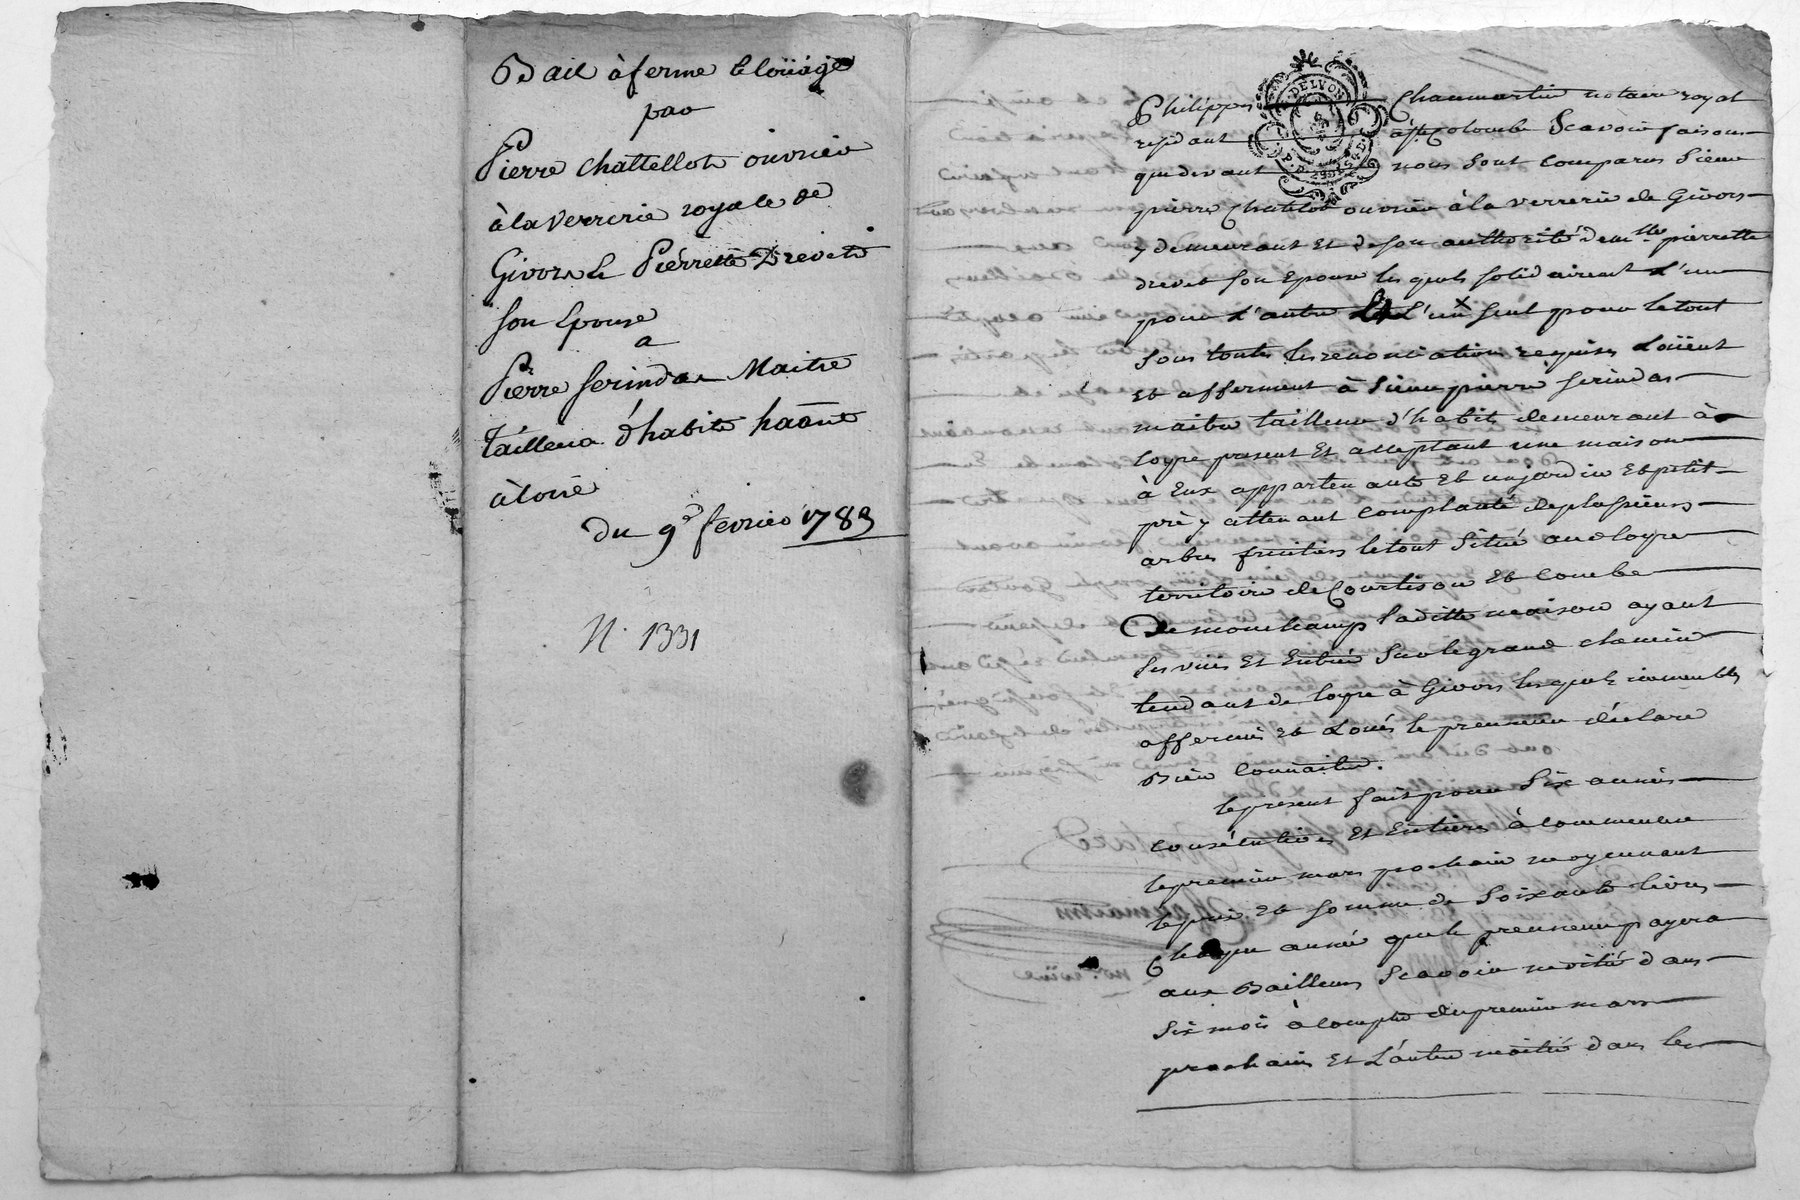 Bail à ferme & loüage
par
Pierre Chattellot ouvrier
à la verrerie royale de
Givors & Pierrette Drevet
son Epouse
a
Pierre Serindas Maitre
tailleur d'habits haânt
à loire
du 9e fevrier 1789
N. 1331
Philippes Chaumartin notaire royal
residant à Ste Colombe Scavoir faisons
que devant nous sont comparus Sieur
pierre Chatelot ouvrier à la verrerie de Givors
y demeurant Et de son authorité demlle pierrette
drevet son Epouse les quels solidairement L'un
pour L'autre Et L'un seul pour le tout
sous toutes les renonciations requises Loüent
Et afferment à Sieur pierre serindas
maitre tailleur d'habits demeurant à
loyre present Et acceptant une maison
à Eux appartenante Et un jardin Et petit
pré y attenant complanté de plusieurs
arbres fruitiers le tout Situé audloyre
territoire de Courtison Et combe
De moncham laditte maison ayant
ses vües Et Entrée Sur le grand chemin
tendant de loyre à Givors les quels immeubles
affermés Et Loués le preneur déclare
Bien connaitre.
le present fait pour Six années
consécutives Et Entieres à commencer
le premier mars prochain moyennant
le prix Et somme de Soixante livres
Chaque année que le preneur payera
aux Bailleurs Scavoir moitié dans
Six mois à compter du premier mars
prochain Et L'autre moitié dans les